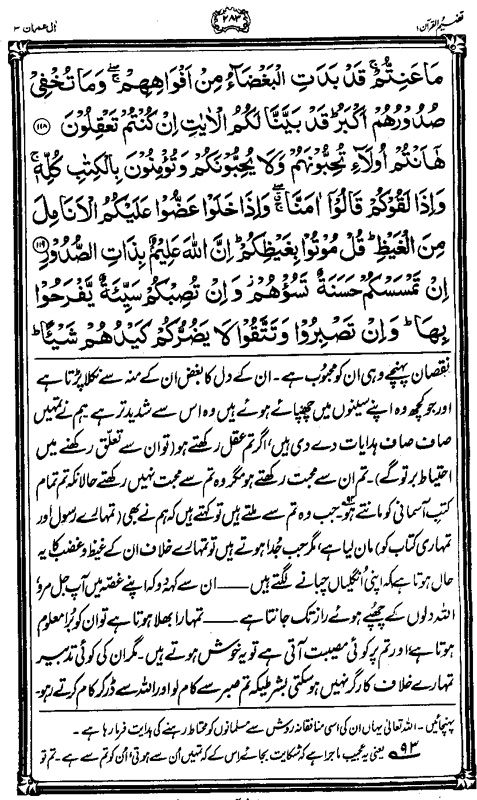 تفہیم القرآن ۱ ۲۸۳ آل عمران ۳
مَا عَنِتُّمْ ۚ قَدْ بَدَتِ الْبَغْضَآءُ مِنْ اَفْوَاهِهِمْ ۖ وَمَا تُخْفِيْ
صُدُوْرُهُمْ اَكْبَرُ ؕ قَدْ بَيَّنَّا لَكُمُ الْاٰيٰتِ اِنْ كُنْتُمْ تَعْقِلُوْنَ ﴿۱۱۸﴾
هٰۤاَنْتُمْ اُولَآءِ تُحِبُّوْنَهُمْ وَلَا يُحِبُّوْنَكُمْ وَتُؤْمِنُوْنَ بِالْكِتٰبِ كُلِّهٖ ۚ
وَاِذَا لَقُوْكُمْ قَالُوْۤا اٰمَنَّا ۖ وَاِذَا خَلَوْا عَضُّوْا عَلَيْكُمُ الْاَنَامِلَ
مِنَ الْغَيْظِ ؕ قُلْ مُوْتُوْا بِغَيْظِكُمْ ؕ اِنَّ اللّٰهَ عَلِيْمٌۢ بِذَاتِ الصُّدُوْرِ ﴿۱۱۹﴾
اِنْ تَمْسَسْكُمْ حَسَنَةٌ تَسُؤْهُمْ ؗ وَاِنْ تُصِبْكُمْ سَيِّئَةٌ يَّفْرَحُوْا
بِهَا ؕ وَاِنْ تَصْبِرُوْا وَتَتَّقُوْا لَا يَضُرُّكُمْ كَيْدُهُمْ شَيْـًٔا ؕ
نقصان پہنچے وہی ان کو محبوب ہے۔ ان کے دل کا بغض ان کے منہ سے نکلا پڑتا ہے
اور جو کچھ وہ اپنے سینوں میں چھپائے ہوئے ہیں وہ اس سے شدید تر ہے۔ ہم نے تمہیں
صاف صاف ہدایات دے دی ہیں، اگر تم عقل رکھتے ہو (تو ان سے تعلق رکھنے میں
احتیاط برتو گے)۔ تم ان سے محبت رکھتے ہو مگر وہ تم سے محبت نہیں رکھتے حالانکہ تم تمام
کتب آسمانی کو مانتے ہو۹۳۔ جب وہ تم سے ملتے ہیں تو کہتے ہیں کہ ہم نے بھی (تمہارے رسول اور
تمہاری کتاب کو) مان لیا ہے، مگر جب جدا ہوتے ہیں تو تمہارے خلاف ان کے غیظ و غضب کا یہ
حال ہوتا ہے کہ اپنی انگلیاں چبانے لگتے ہیں ــــــ ان سے کہہ دو کہ اپنے غصہ میں آپ جل مرو،
اللہ دلوں کے چھپے ہوئے راز تک جانتا ہے ــــــ تمہارا بھلا ہوتا ہے تو ان کو برا معلوم
ہوتا ہے، اور تم پر کوئی مصیبت آتی ہے تو یہ خوش ہوتے ہیں۔ مگر ان کی کوئی تدبیر
تمہارے خلاف کارگر نہیں ہو سکتی بشرطیکہ تم صبر سے کام لو اور اللہ سے ڈر کر کام کرتے رہو۔
پہنچائیں۔ اللہ تعالیٰ یہاں ان کی اسی منافقانہ روش سے مسلمانوں کو محتاط رہنے کی ہدایت فرما رہا ہے۔
۹۳ یعنی یہ عجیب ماجرا ہے کہ شکایت بجائے اس کے کہ تمہیں اُن سے ہوتی، اُن کو تم سے ہے۔ تم تو